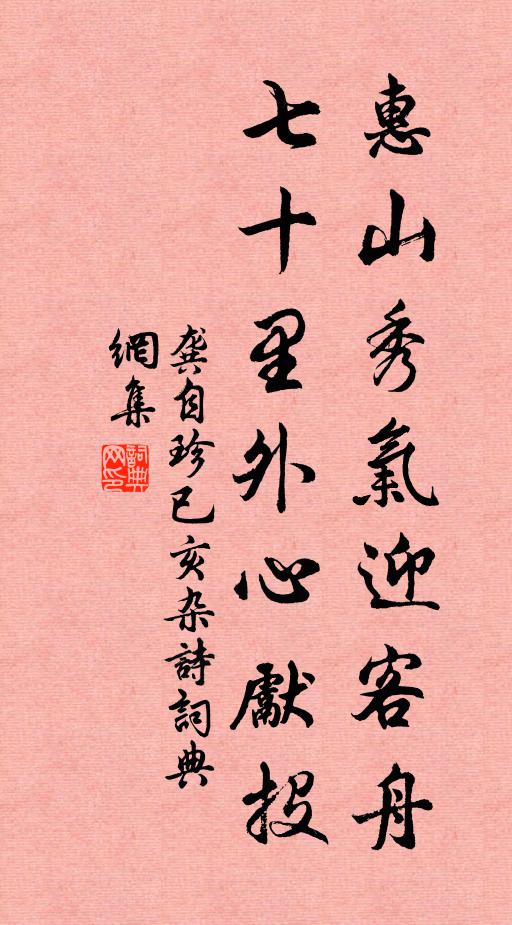 惠山秀氣迎客舟
七十里外心獻投
龔自珍己亥杂詩詞典
網集
詞典
网印